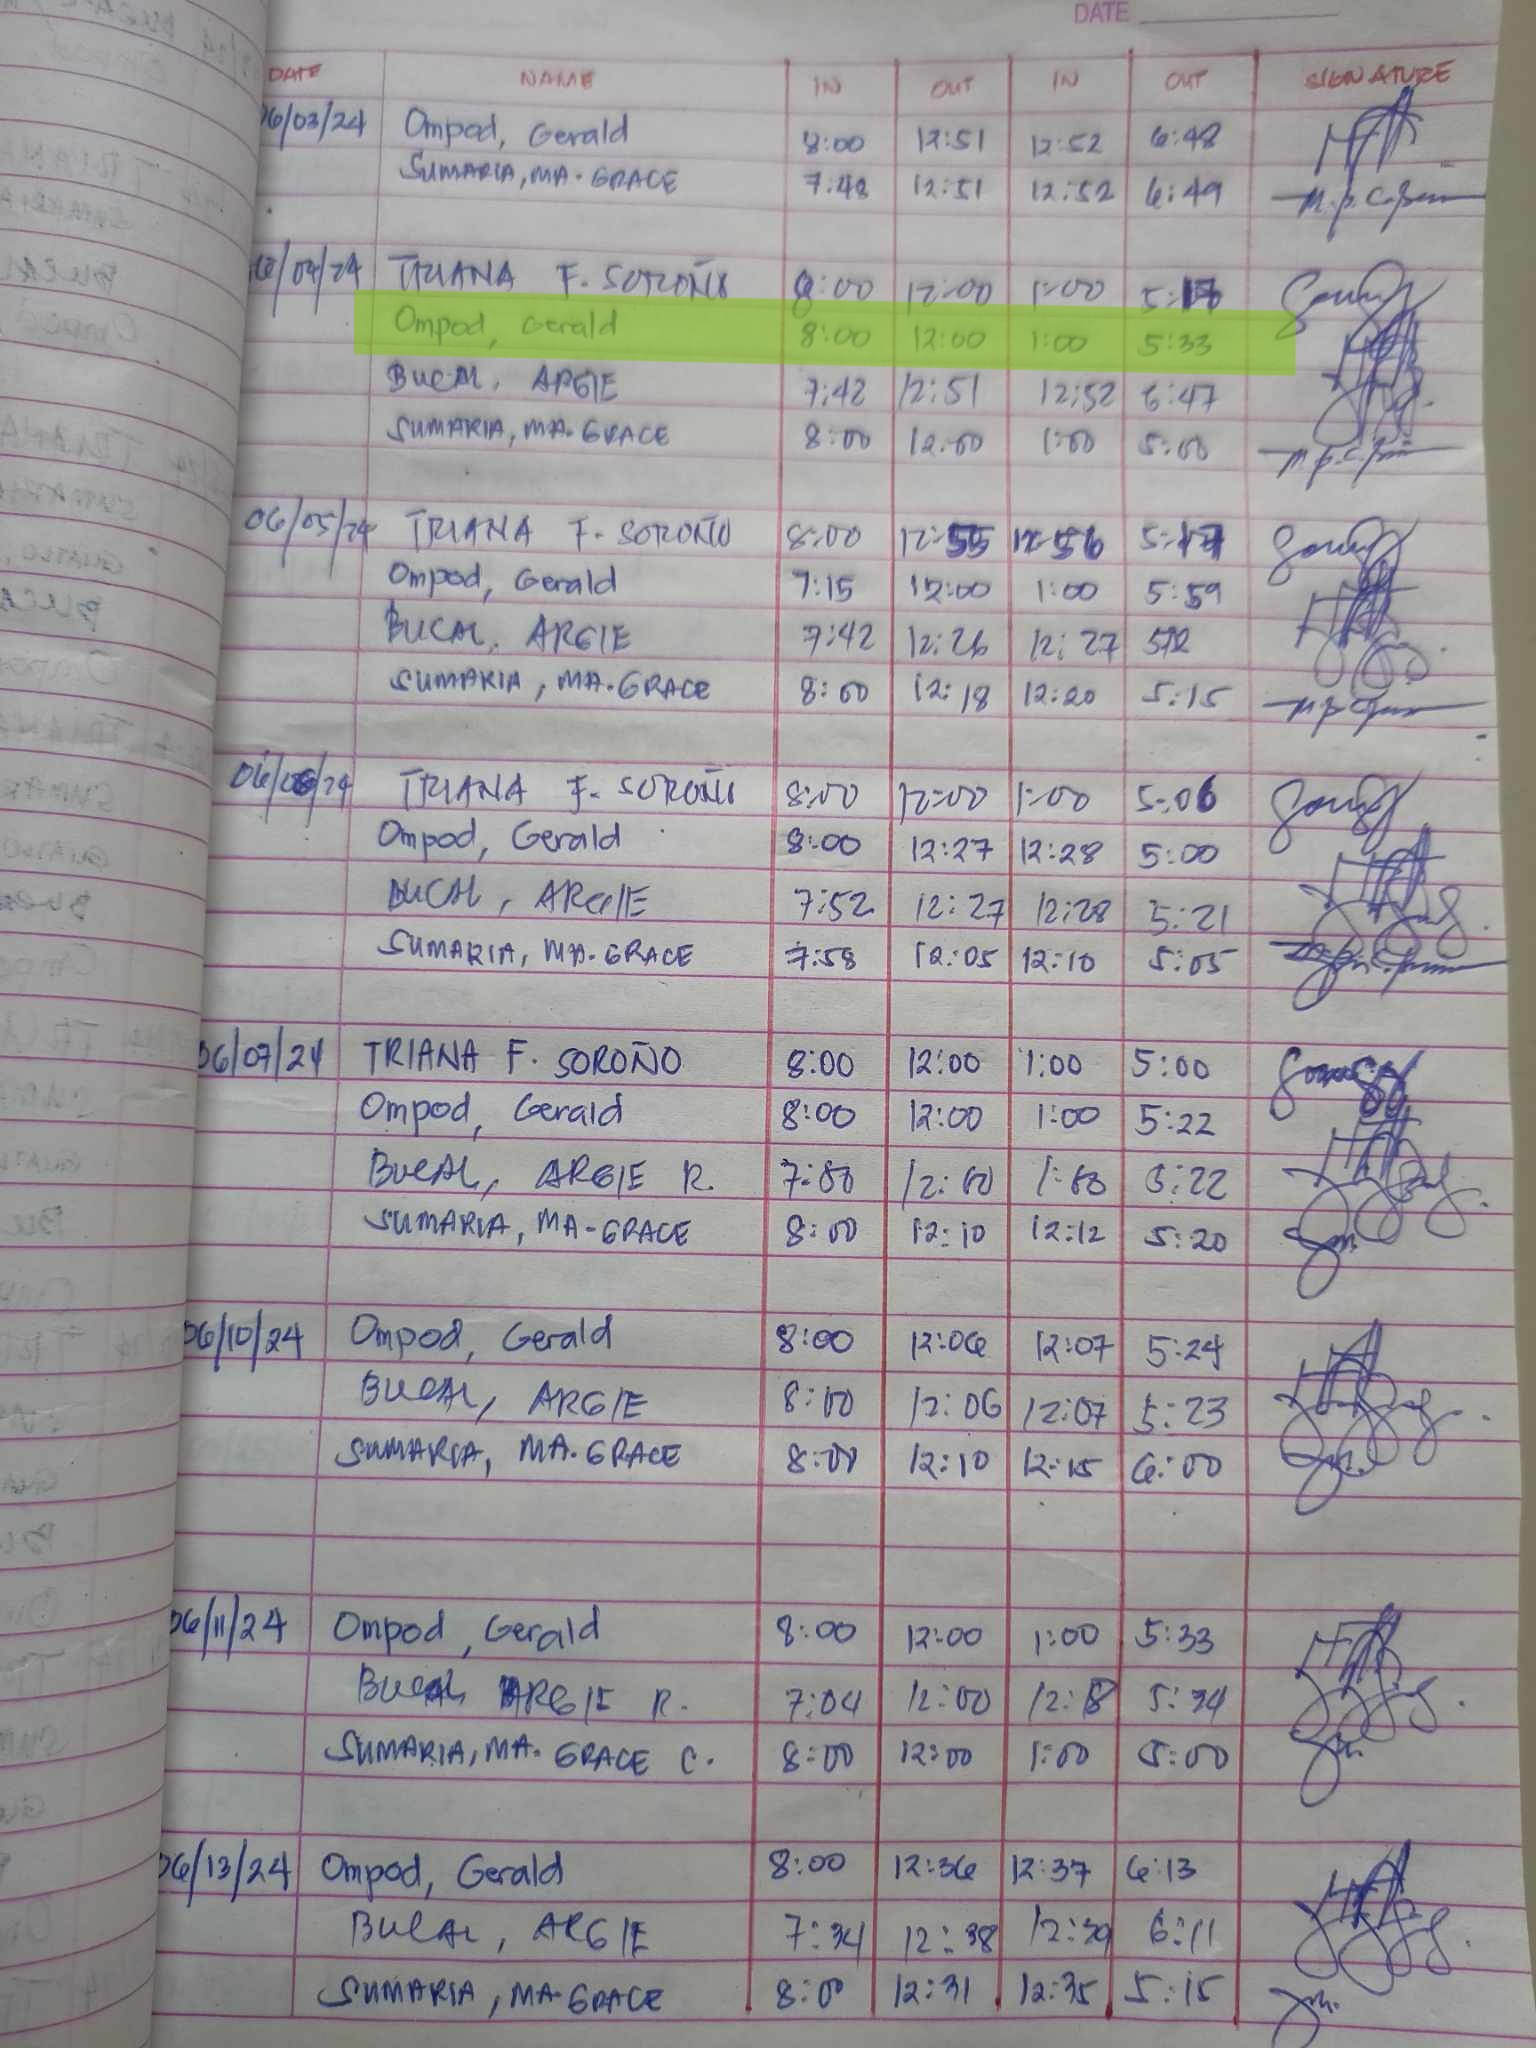 DATE
DATE NAME IN OUT IN OUT SIGNATURE
06/03/24 Ompod, Gerald 8:00 12:51 12:52 6:48
SUMARIA, MA. GRACE 7:48 12:51 12:52 6:49
06/04/24 TRIANA F. SOROÑO 8:00 12:00 1:00
Ompod, Gerald 8:00 12:00 1:00 5:33
BUCAL, ARGIE 7:42 12:51 12:52 6:47
SUMARIA, MA. GRACE 8:00 12:00 1:00 5:00
06/05/24 TRIANA F. SOROÑO 8:00 12:55 12:56
Ompod, Gerald 7:15 12:00 1:00 5:59
BUCAL, ARGIE 7:42 12:26 12:27
SUMARIA, MA. GRACE 8:00 12:18 12:20 5:15
06/06/24 TRIANA F. SOROÑO 8:00 12:00 1:00 5:06
Ompod, Gerald 8:00 12:27 12:28 5:00
BUCAL, ARGIE 7:52 12:27 12:28 5:21
SUMARIA, MA. GRACE 7:58 12:05 12:10 5:05
06/07/24 TRIANA F. SOROÑO 8:00 12:00 1:00 5:00
Ompod, Gerald 8:00 12:00 1:00 5:22
BUCAL, ARGIE R. 7:00 12:00 1:00 5:22
SUMARIA, MA-GRACE 8:00 12:10 12:12 5:20
06/10/24 Ompod, Gerald 8:00 12:06 12:07 5:24
BUCAL, ARGIE 8:00 12:06 12:07 5:23
SUMARIA, MA. GRACE 8:00 12:10 12:15 6:00
06/11/24 Ompod, Gerald 8:00 12:00 1:00 5:33
BUCAL ARGIE R. 7:04 12:00 12:18 5:34
SUMARIA, MA. GRACE C. 8:00 12:00 1:00 5:00
06/13/24 Ompod, Gerald 8:00 12:36 12:37 6:13
BUCAL, ARGIE 7:34 12:38 12:39 6:11
SUMARIA, MA-GRACE 8:00 12:31 12:35 5:15